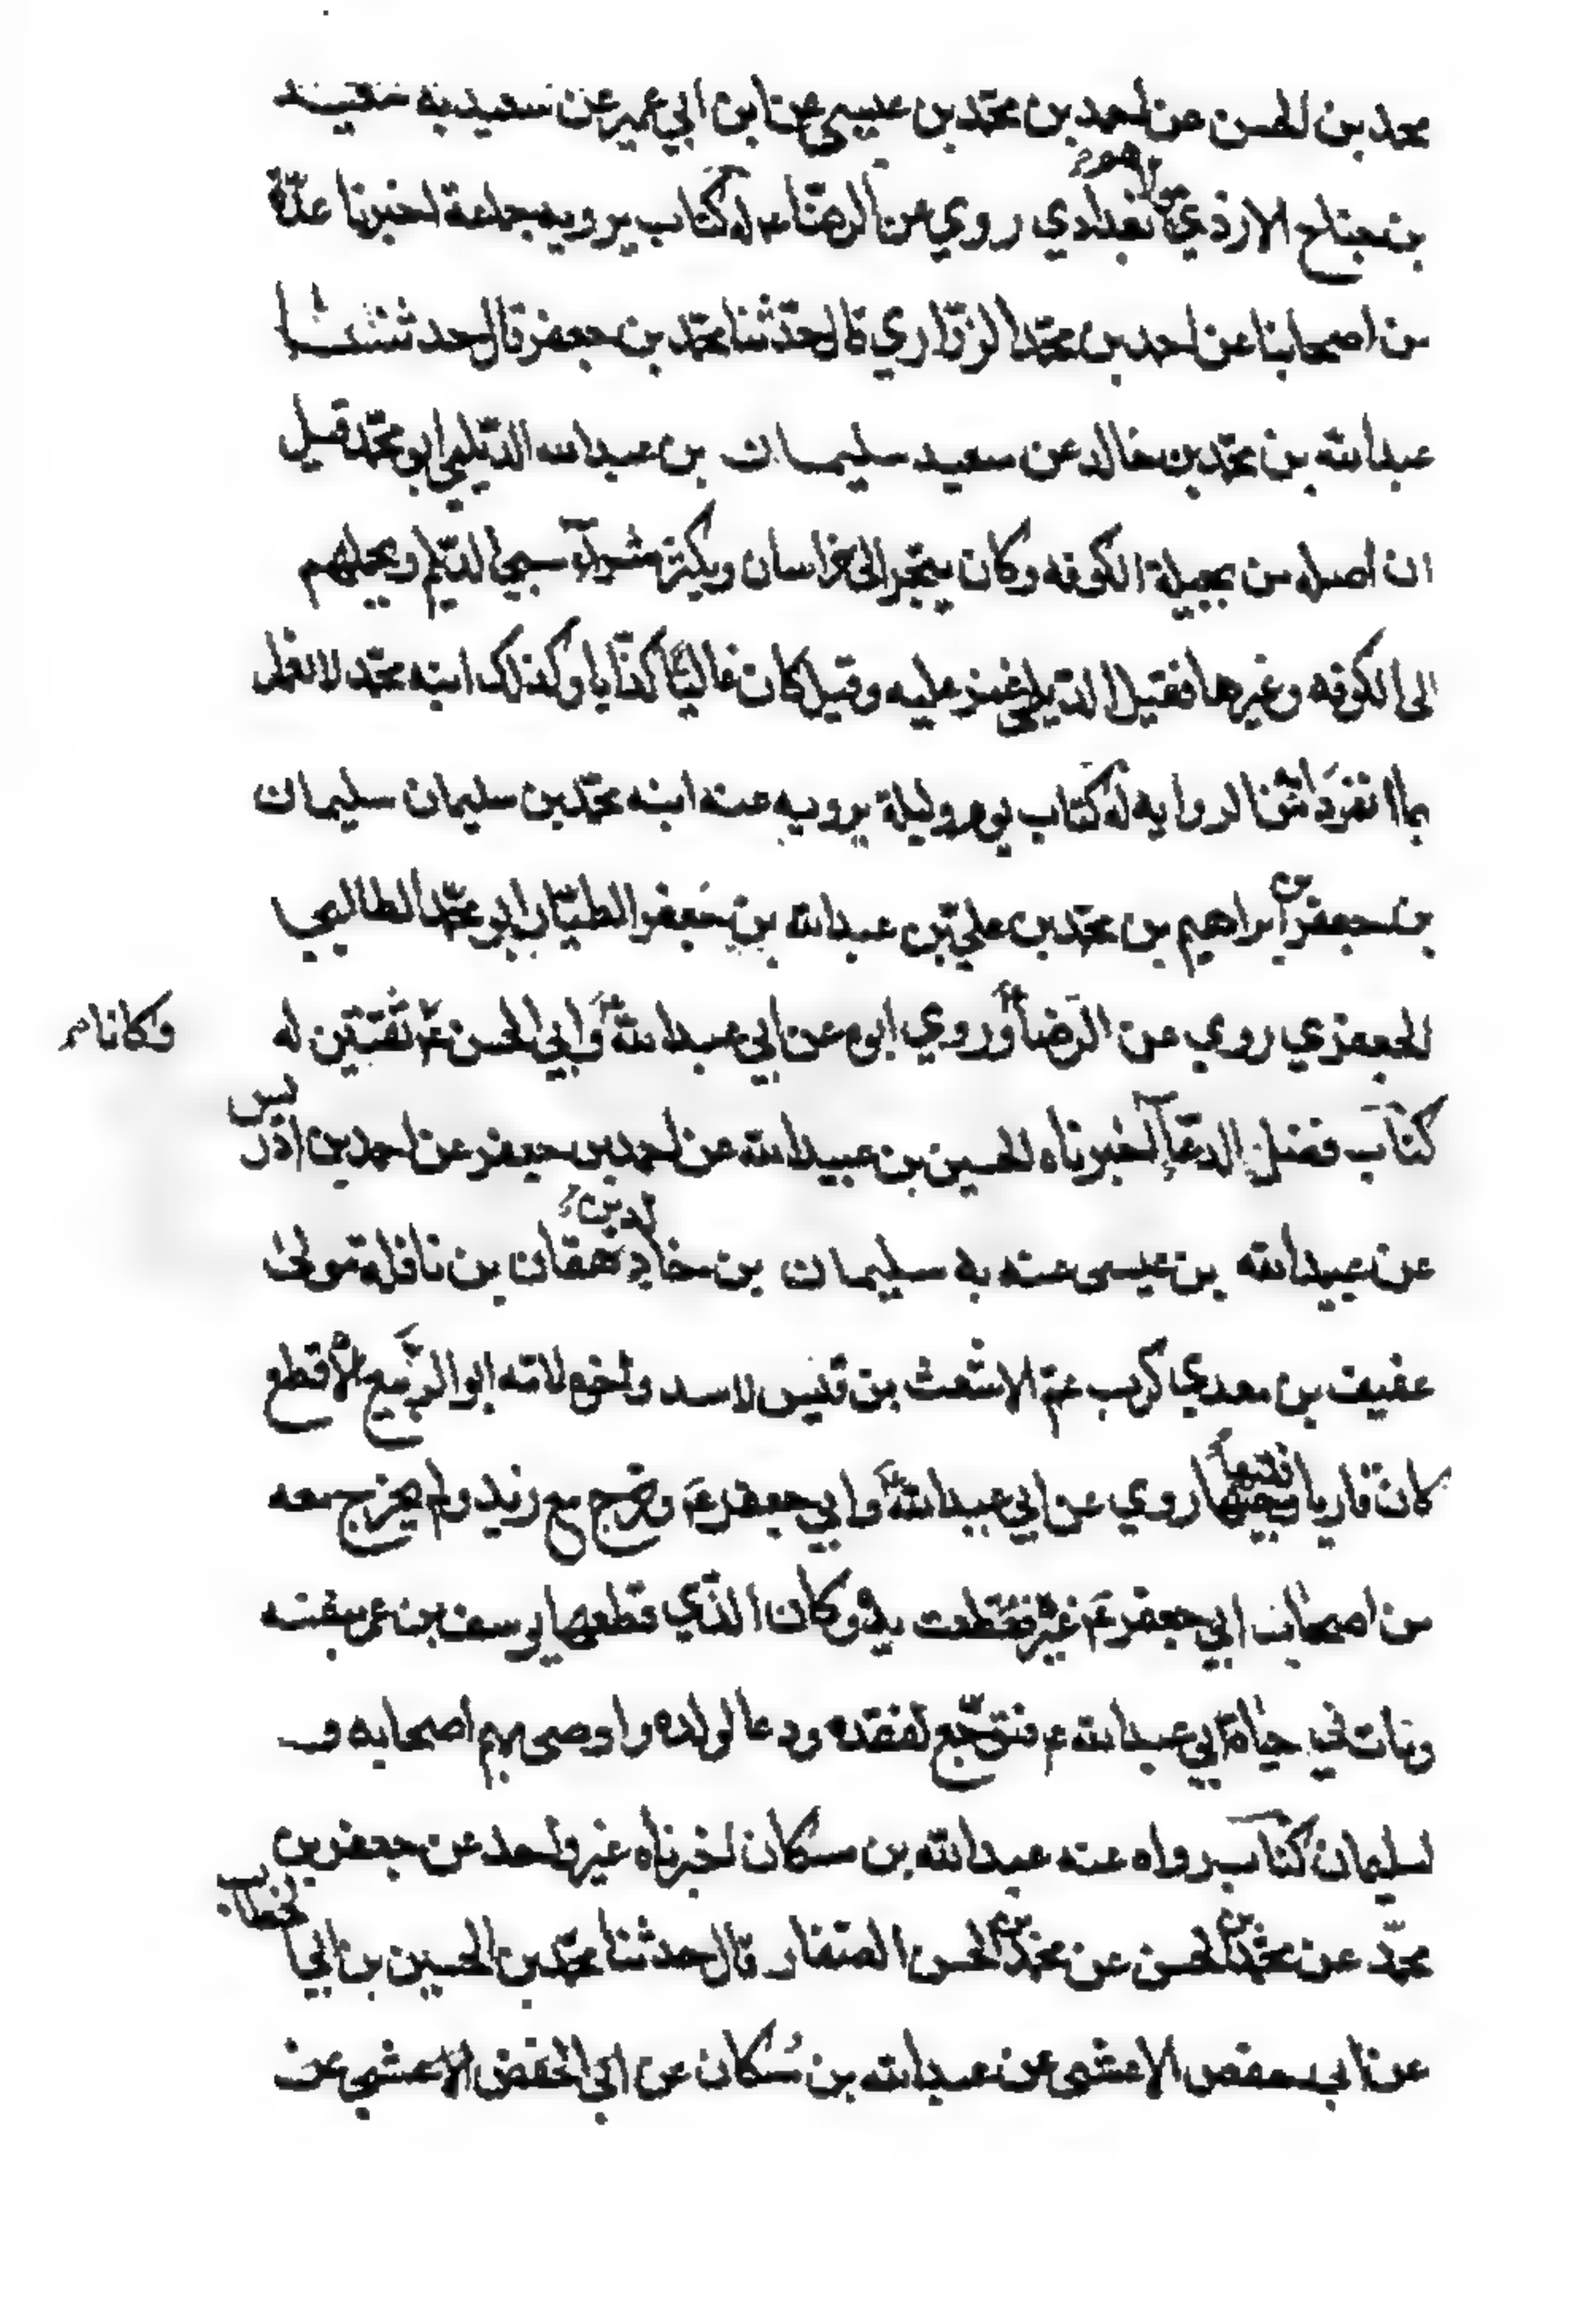 محمد بن الحسن عن احمد بن محمّد بن عيسى عن ابن ابي عمير عن سعيد به
بن جناح الازدي مولاهم بغدادي روي عن الرضاء له كتاب يرويه جماعة اخبرنا عدّة
من اصحابنا عن احمد بن محمّد الزرّاري قال حدّثنا محمّد بن جعفر قال حدثنا
عبدالله بن محمّد بن خالد عن سعيد سليمان بن عبدالله الدّيلمي ابو محمّد قيل
ان اصله من بجيلة الكوفه وكان يتجر الى خراسان ويكثر شرآء سبي الديلم ويحملهم
الى الكوفه وغيرها فقيل الديلمي غمز عليه وقيل كان غاليًا كذّابا وكذلك ابنه محمّد لا يعمل
بما انفردا به من الروايه له كتاب يوم وليلة يرويه عنه ابنه محمّد بن سليمان سليمان
بن جعفر بن ابراهيم بن محمّد بن علي بن عبدالله بن جعفر الطيّار ابو محمّد الطالبي
الجعفري روي عن الرّضا وروي ابوه عن ابي عبدالله وابي الحسن ع وكانا ثقتين له
كتاب فضل الدعآ اخبرناه الحسين بن عبيدالله عن احمد بن جعفر عن احمد بن ادريس
عن عبيدالله بن عيسى عنه به سليمان بن خالد بن دهقان بن نافلة مولى
عفيف بن معدي كرب عم الاشعث بن قيس لابيه واخوه لامه ابو الربيع الاقطع
كان قاريا فقيها روي عن ابي عبدالله وابي جعفر ع وخرج مع زيد ولم يخرج معه
من اصحاب ابي جعفر ع غيره فقطعت يده وكان الذّي قطعها يوسف بن عمر بنفسه
ومات في حياة ابي عبدالله ع فتوجّع لفقده ودعا لولده واوصى بهم اصحابه و
لسليمان كتاب رواه عنه عبدالله بن مسكان اخبرناه غير واحد عن جعفر بن
محمّد عن محمّد بن الحسن عن محمّد بن الحسن الصفار قال حدثنا محمّد بن الحسين بن ابي الخطاب
عن ابي حفص الاعشى عن عبدالله بن سُكان عن ابي الحفص الاعشى عن